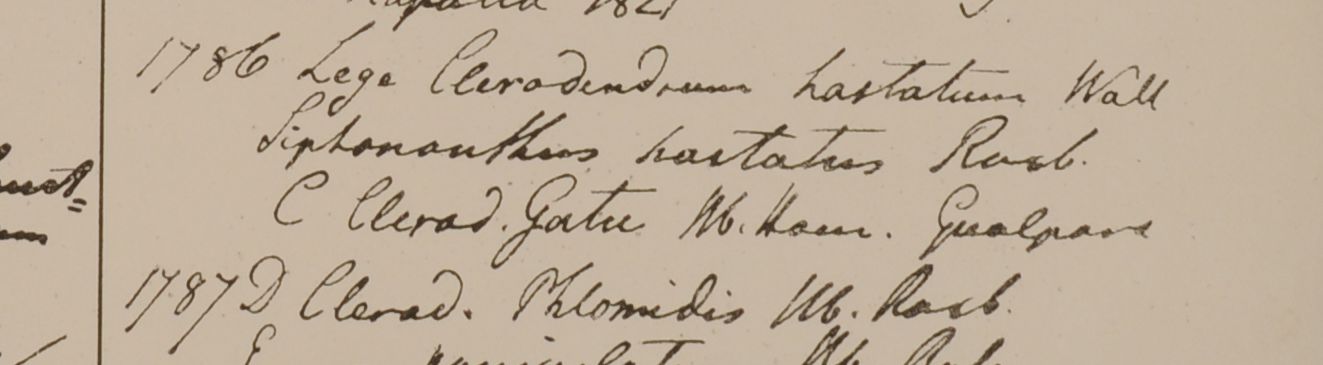 Napalia 1821
1786 Lege Clerodendrum hastatum Wall
Siphonanthus hastatus Roxb.
C Clerod. Gatu Hb. Ham. Gualpara
1787 D Clerod. Phlomidis Hb. Roxb.
E paniculat Hb.